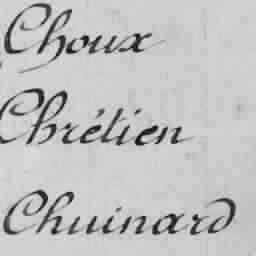 Choux
Chrétien
Chuinard